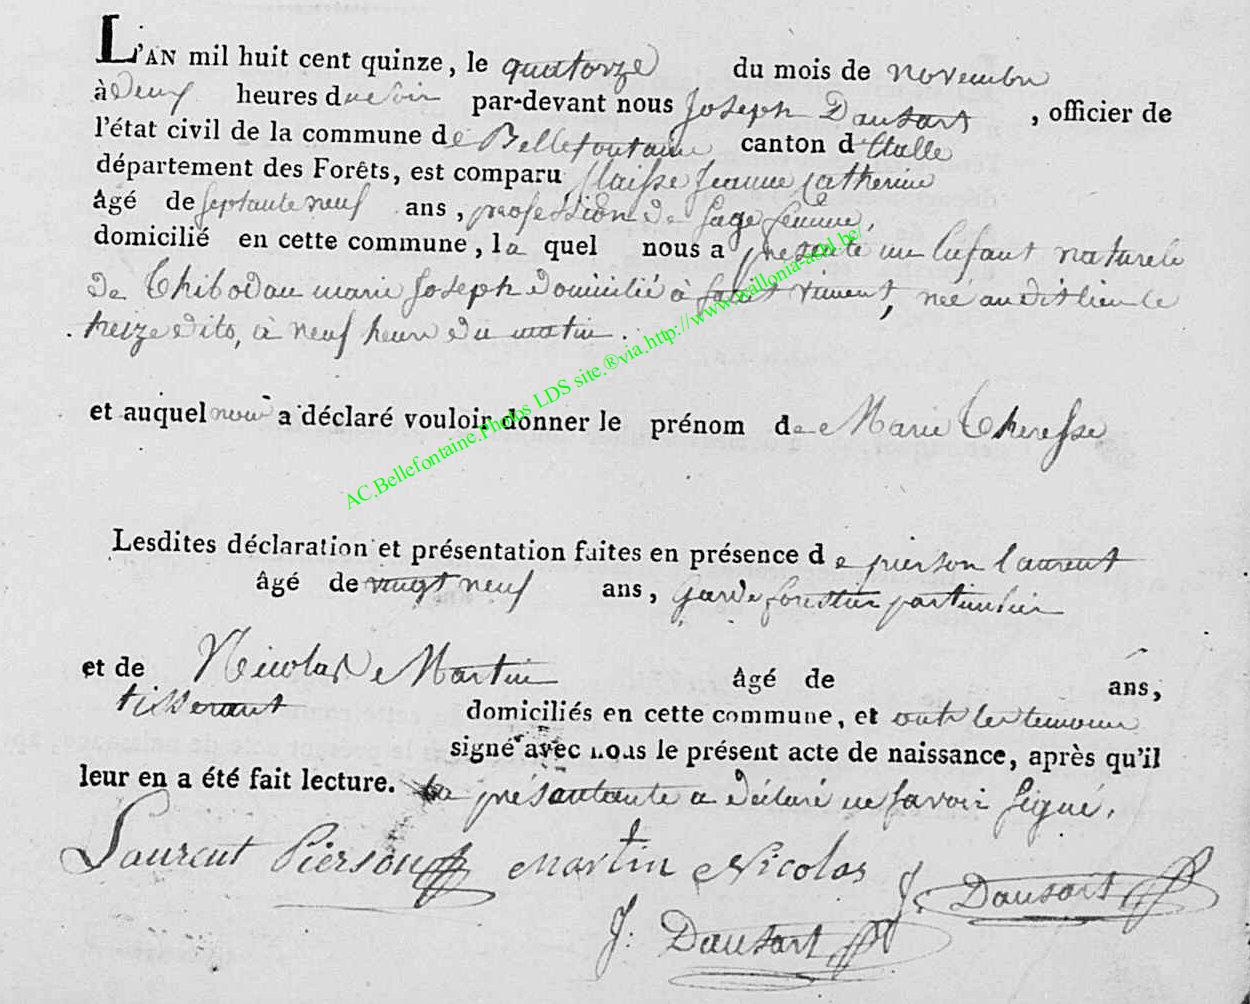 L'AN mil huit cent quinze, le quatorze du mois de novembre
à deux heures du soir par-devant nous Joseph Dausart, officier de
l'état civil de la commune de Bellefontaine canton d'Etalle
département des Forêts, est comparu Claisse Jeanne Catherine
âgé de septante neuf ans, profession de sage femme,
domicilié en cette commune, la quel nous a présenté un Enfant naturele
de Thibodau marie Joseph domicilié à saint vincent, neé audit lieu le
treize dito, à neuf heure du matin.
et auquel a déclaré vouloir donner le prénom de Marie Theresse
Lesdites déclaration et présentation faites en présence de pierson laurent
âgé de vingt neuf ans, garde forestier particulier
et de Nicolas Martin âgé de ans,
tisserant domiciliés en cette commune, et ont les temoins
signé avec nous le présent acte de naissance, après qu'il
leur en a été fait lecture. La présentante a déclaré ne savoir signé.
Laurent Pierson Martin Nicolas J. Dausart
J: Dausart
AC.Bellefontaine.Photos LDS site.®via.http://www.wallonia-asbl.be/